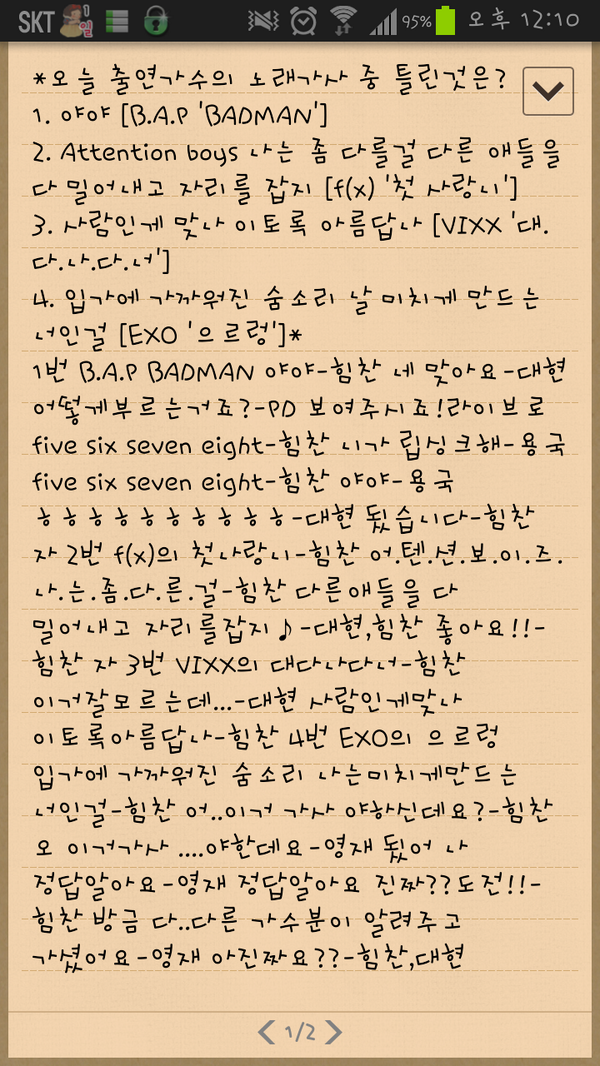 SKT 1 일 95% 오후 12:10
*오늘 출연가수의 노래가사 중 틀린것은?
1. 야야 [B.A.P 'BADMAN']
2. Attention boys 나는 좀 다를걸 다른 애들을
다 밀어내고 자리를 잡지 [f(x) '첫 사랑니']
3. 사람인게 맞나 이토록 아름답나 [VIXX '대.
다.나.다.너']
4. 입가에 가까워진 숨소리 날 미치게 만드는
너인걸 [EXO '으르렁']*
1번 B.A.P BADMAN 야야-힘찬 네 맞아요-대현
어떻게부르는거죠?-PD 보여주시죠!라이브로
five six seven eight-힘찬 니가 립싱크해-용국
five six seven eight-힘찬 야야-용국
ㅎㅎㅎㅎㅎㅎㅎㅎㅎㅎ-대현 됬습니다-힘찬
자 2번 f(x)의 첫사랑니-힘찬 어.텐.션.보.이.즈.
나.는.좀.다.른.걸-힘찬 다른애들을 다
밀어내고 자리를잡지♪-대현,힘찬 좋아요!!-
힘찬 자 3번 VIXX의 대다나다너-힘찬
이거잘모르는데...-대현 사람인게맞나
이토록아름답나-힘찬 4번 EXO의 으르렁
입가에 가까워진 숨소리 나는미치게만드는
너인걸-힘찬 어..이거 가사 야하신데요?-힘찬
오 이거가사 ....야한데요-영재 됬어 나
정답알아요-영재 정답알아요 진짜??도전!!-
힘찬 방금 다..다른 가수분이 알려주고
가셨어요-영재 아진짜요??-힘찬,대현
1/2